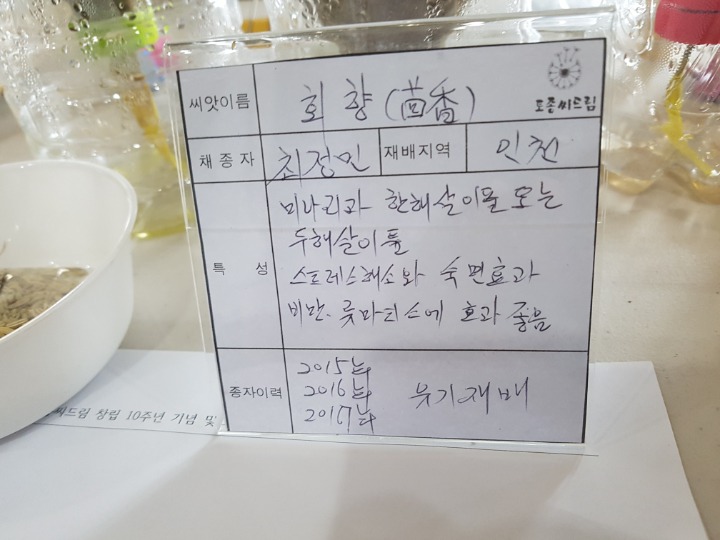 토종씨드림
씨앗이름 회향(茴香)
채종자 최정민 재배지역 인천
특성
미나리과 한해살이풀 또는
두해살이풀
스트레스해소와 숙면효과
비만·륫마티스에 효과 좋음
종자이력
2015년
2016년
2017년
유기재배
씨드림 창립 10주년 기념 및